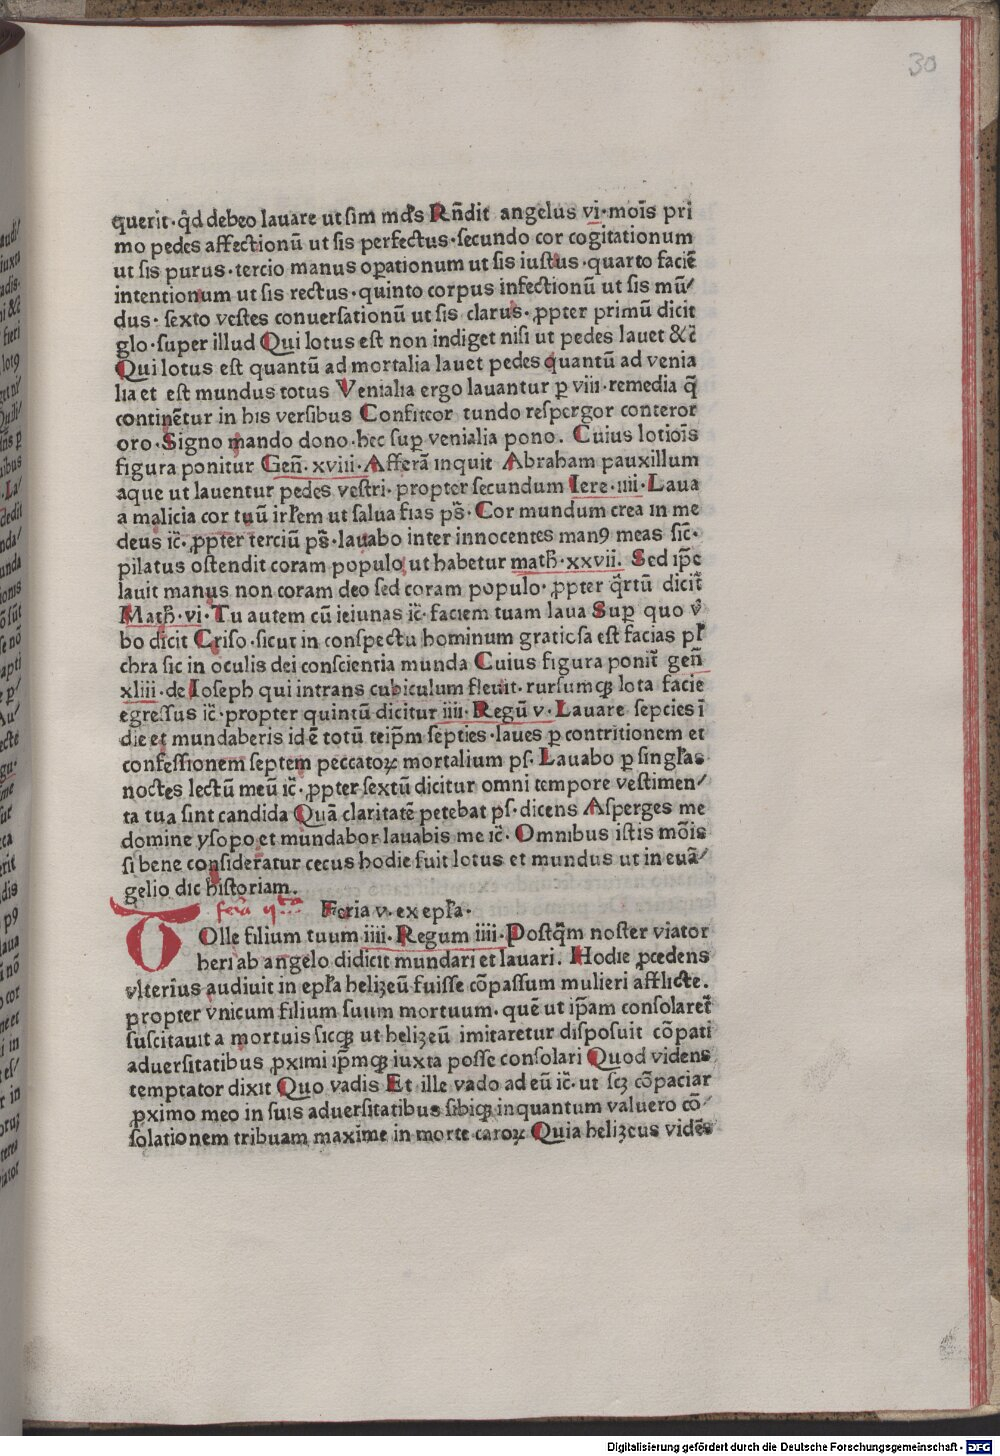 30
querit·q̄d debeo lauare ut sim mūds Rn̄dit angelus vi·mōis pri
mo pedes affectionū ut sis perfectus·secundo cor cogitationum
ut sis purus·tercio manus oꝑationum ut sis iustus·quarto faciē
intentionum ut sis rectus·quinto corpus infectionū ut sis mū⸗
dus· sexto vestes conuersationū ut sis clarus· ꝓpter primū dicit
glo·super illud Qui lotus est non indiget nisi ut pedes lauet &c̄
Qui lotus est quantū ad mortalia lauet pedes quantū ad venia
lia et est mundus totus Venialia ergo lauantur ꝑ viii·remedia q̄
continētur in his versibus Confiteor tundo respergor conteror
oro·Signo mando dono·hec suꝑ venialia pono. Cuius lotiōis
figura ponitur Gen̄·xviii·Afferā inquit Abraham pauxillum
aque ut lauentur pedes vestri·propter secundum Iere·iiii·Laua
a malicia cor tuū irl̄em ut salua fias ps̄·Cor mundum crea in me
deus ic̄·ꝓpter terciū ps̄·lauabo inter innocentes manꝰ meas sic·
pilatus ostendit coram populo ut habetur math̄·xxvii. Sed ip̄e
lauit manus non coram deo sed coram populo·ꝓpter q̄rtū dicit̄
Math̄·vi·Tu autem cū ieiunas ic̄·faciem tuam laua Suꝑ quo v̄
bo dicit Criso·sicut in conspectu hominum gratiosa est facias pl̄
chra sic in oculis dei conscientia munda Cuius figura ponit̄ gen̄
xliii·de Ioseph qui intrans cubiculum fleuit·rursumqꝫ lota facie
egressus ic̄·propter quintū dicitur iiii·Regū v·Lauare sepcies ī
die et mundaberis id ē totū teip̄m septies·laues ꝑ contritionem et
confessionem septem peccatoꝝ mortalium ps·Lauabo ꝑ singl̄as
noctes lectū meū ic̄·ꝓpter sextū dicitur omni tempore vestimen⸗
ta tua sint candida Quā claritatē petebat ps·dicens Asperges me
domine ysopo et mundabor lauabis me ic̄·Omnibus istis mōis
si bene consideratur cecus hodie fuit lotus et mundus ut in euā⸗
gelio dic historiam.
Feria v·ex epl̄a·
TOlle filium tuum iiii·Regum iiii·Postq̄m noster viator
heri ab angelo didicit mundari et lauari. Hodie ꝓcedens
vlterius audiuit in epl̄a helizeū fuisse cōpassum mulieri afflicte.
propter vnicum filium suum mortuum·quē ut ip̄am consolaret̄
suscitauit a mortuis sicqꝫ ut helizeū imitaretur disposuit cōpati
aduersitatibus ꝓximi ip̄mqꝫ iuxta posse consolari Quod videns
temptator dixit Quo vadis Et ille vado ad eū ic̄·ut scꝫ cōpaciar
ꝓximo meo in suis aduersitatibus sibiqꝫ inquantum valuero cō⸗
solationem tribuam maxime in morte caroꝝ Quia helizeus vidēs
Digitalisierung gefördert durch die Deutsche Forschungsgemeinschaft - DFG